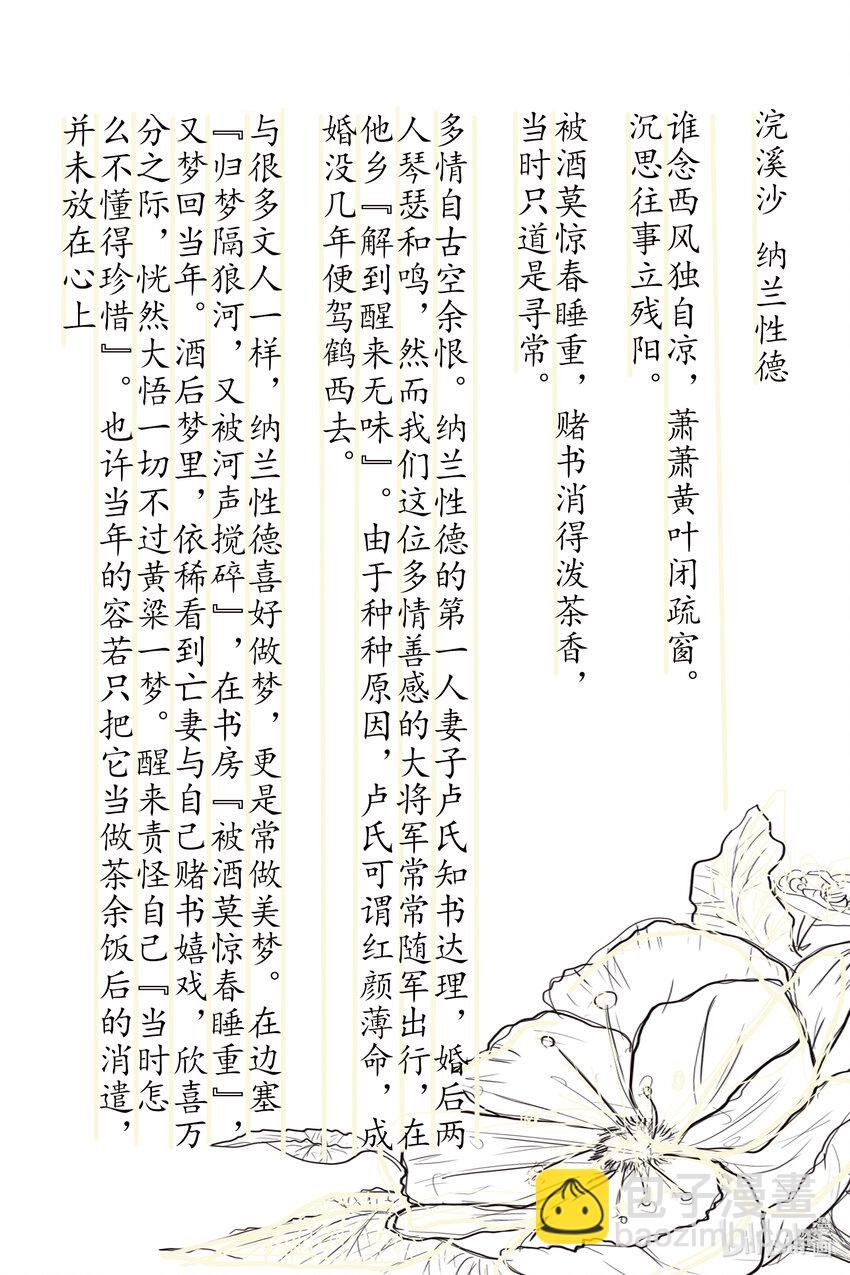 浣溪沙 纳兰性德
谁念西风独自凉，萧萧黄叶闭疏窗。
沉思往事立残阳。
被酒莫惊春睡重，赌书消得泼茶香，
当时只道是寻常。
多情自古空余恨。纳兰性德的第一人妻子卢氏知书达理，婚后两
人琴瑟和鸣，然而我们这位多情善感的大将军常常随军出行，在
他乡『解到醒来无味』。由于种种原因，卢氏可谓红颜薄命，成
婚没几年便驾鹤西去。
与很多文人一样，纳兰性德喜好做梦，更是常做美梦。在边塞
『归梦隔狼河，又被河声搅碎』，在书房『被酒莫惊春睡重』，
又梦回当年。酒后梦里，依稀看到亡妻与自己赌书嬉戏，欣喜万
分之际，恍然大悟一切不过黄粱一梦。醒来责怪自己『当时怎
么不懂得珍惜』。也许当年的容若只把它当做茶余饭后的消遣，
并未放在心上
包子漫畫
baozimh.com